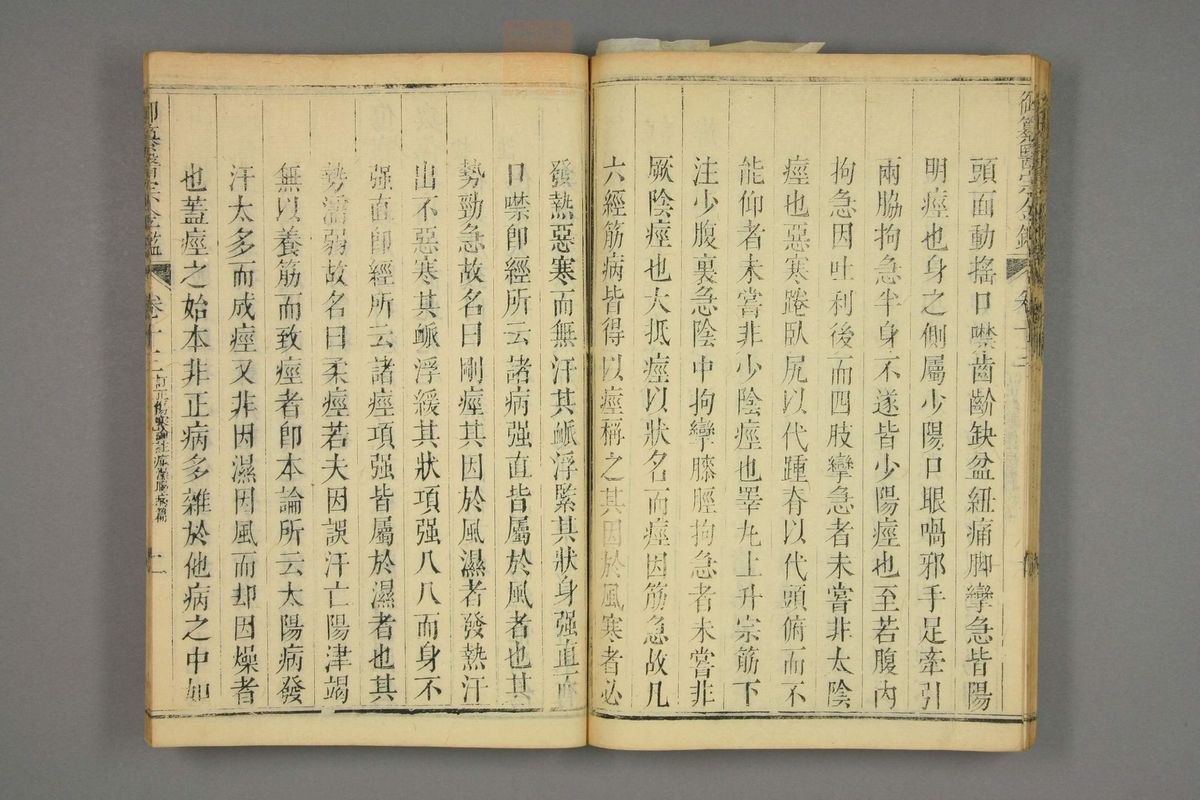 頭面動搖口噤齒齘缺盆紐痛脚攣急皆陽
明痙也身之側屬少陽口眼喎邪手足牽引
兩脇拘急半身不遂皆少陽痙也至若腹内
拘急因吐利後而四肢攣急者未嘗非太陰
痙也惡寒踡臥尻以代踵脊以代頭俯而不
能仰者未嘗非少陰痙也睪丸上升宗筋下
注少腹裏急陰中拘攣膝脛拘急者未嘗非
厥陰痙也大抵痙以狀名而痙因筋急故凡
六經筋病皆得以痙稱之其因於風寒者必
發熱惡寒而無汗其脈浮緊其狀身强直而
口噤卽經所云諸病强直皆屬於風者也其
勢勁急故名曰剛痙其因於風濕者發熱汗
出不惡寒其脈浮緩其狀項强八八而身不
强直卽經所云諸痙項强皆屬於濕者也其
勢濡弱故名曰柔痙若夫因誤汗亡陽津竭
無以養筋而致痙者卽本論所云太陽病發
汗太多而成痙又非因濕因風而却因燥者
也蓋痙之始本非正病多雜於他病之中如
御纂醫宗金鑑
卷十二